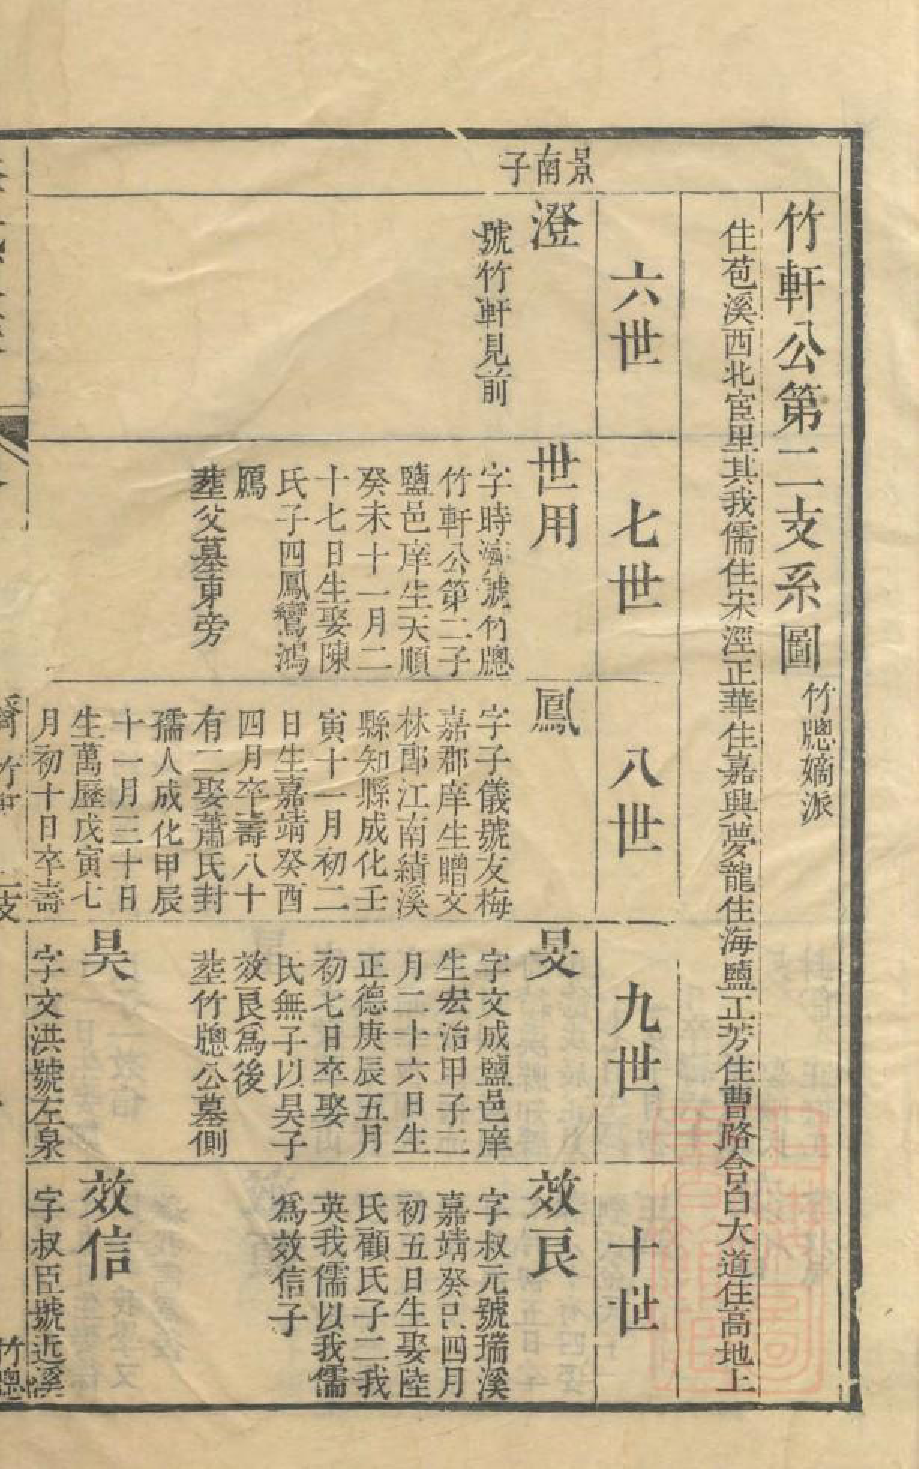 竹軒公第二支系圖
竹牕嫡派
住苞溪西北宦里其我儒住宋涇正華住嘉興夢龍住海鹽正芳住曹路含白大道住高地上
六世
七世
八世
九世
十世
景南子
澄
號竹軒見前
世用
字時濟號竹牕
竹軒公第二子
鹽邑庠生天順
癸未十一月二
十七日生娶陳
氏子四鳳鸞鴻
鴈
塟父墓東旁
鳳
字子儀號友梅
嘉郡庠生贈文
林郎江南績溪
縣知縣成化壬
寅十一月初二
日生嘉靖癸酉
四月卒壽八十
有二娶蕭氏封
孺人成化甲辰
十一月三十日
生萬歷戊寅七
月初十日卒壽
旻
字文成鹽邑庠
生宏治甲子二
月二十六日生
正德庚辰五月
初七日卒娶
氏無子以昊子
效良為後
塟竹牕公墓側
昊
字文洪號左泉
效良
字叔元號瑞溪
嘉靖癸巳四月
初五日生娶陸
氏顧氏子二我
英我儒以我儒
為效信子
效信
字叔臣號近溪
竹牕